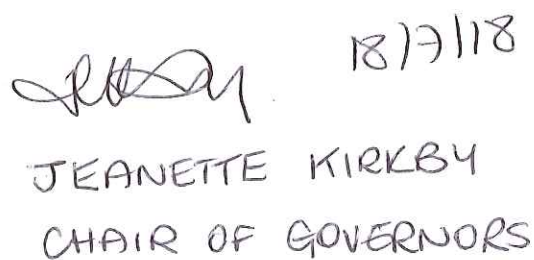 18/7/18
JEANETTE KIRKBY
CHAIR OF GOVERNORS